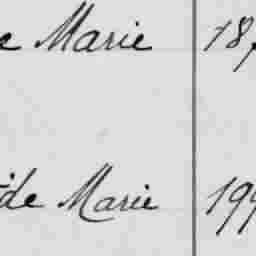 e Marie 18
ide Marie 199